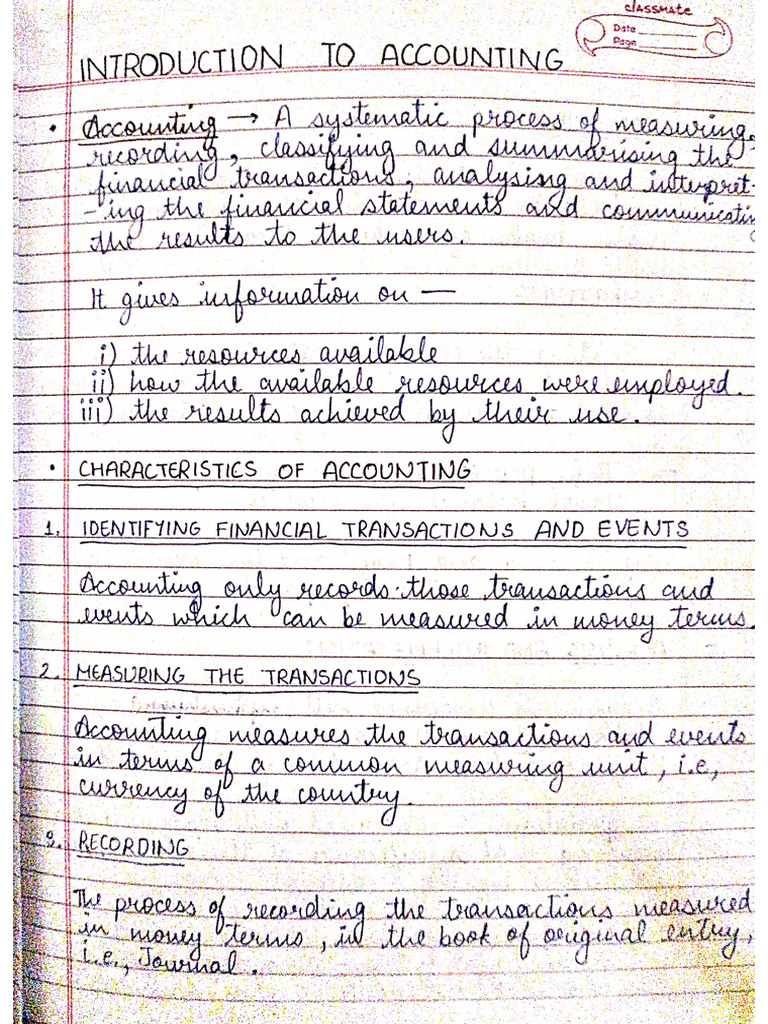 classmate
Date
Page
INTRODUCTION TO ACCOUNTING
• Accounting → A systematic process of measuring,
recording, classifying and summarising the
financial transactions, analysing and interpret-
-ing the financial statements and communicatin
the results to the users.
It gives information on —
i) the resources available
ii) how the available resources were employed.
iii) the results achieved by their use.
• CHARACTERISTICS OF ACCOUNTING
1. IDENTIFYING FINANCIAL TRANSACTIONS AND EVENTS
Accounting only records those transactions and
events which can be measured in money terms.
2. MEASURING THE TRANSACTIONS
Accounting measures the transactions and events
in terms of a common measuring unit, i.e,
currency of the country.
3. RECORDING
The process of recording the transactions measured
in money terms, in the book of original entry,
i.e., Journal.